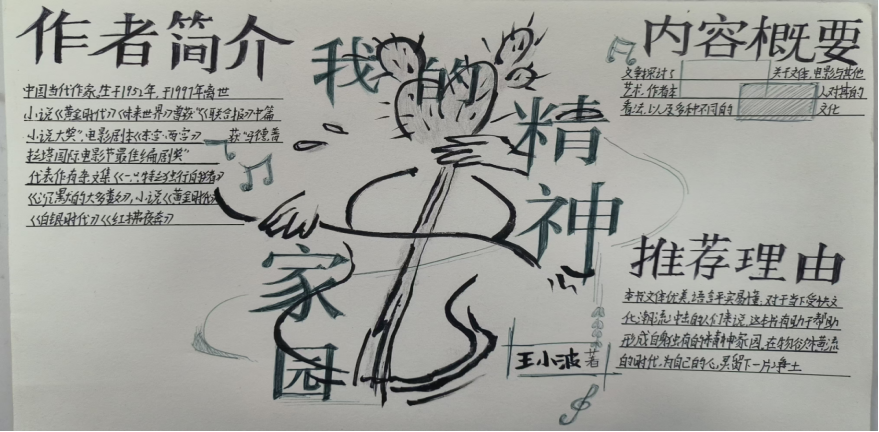 作者简介
中国当代作家,生于1952年,于1997年离世
小说《黄金时代》《未来世界》曾获《联合报》中篇
小说大奖",电影剧本《东宫·西宫》 获"马德普
拉塔国际电影节最佳编剧奖"
代表作有杂文集《一只特立独行的猪》
《沉默的大多数》,小说《黄金时代》
《白银时代》《红拂夜奔》
我的精神家园
王小波 著
内容概要
文章探讨了 关于文体,电影与其他
艺术,作者本 人对其的
看法,以及多种不同的 文化
推荐理由
本书文体优美,语言平实易懂,对于当下受快文
化潮流冲击的人们来说,这本书有助于帮助
形成自身独有的精神家园,在物欲横流
的时代,为自己的心灵留下一片净土